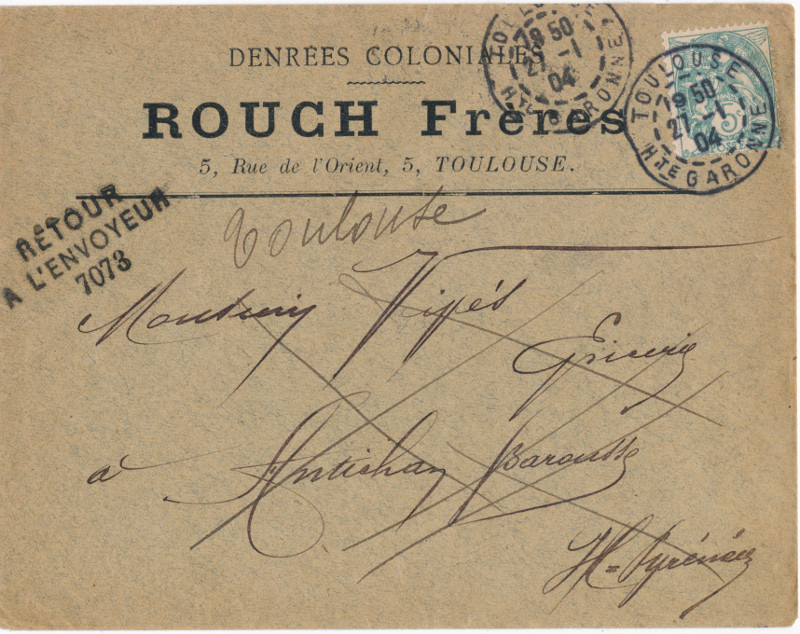 DENRÉES COLONIALES
ROUCH Frères
5, Rue de l'Orient, 5, TOULOUSE.
TOULOUSE
19 50
27 -1
04
HTE GARONNE
TOULOUSE
19 50
27 -1
04
HTE GARONNE
5
RETOUR
A L'ENVOYEUR
7073
Toulouse
Monsieur
Epicerie
à Antichan Barousse
Htes Pyrénées